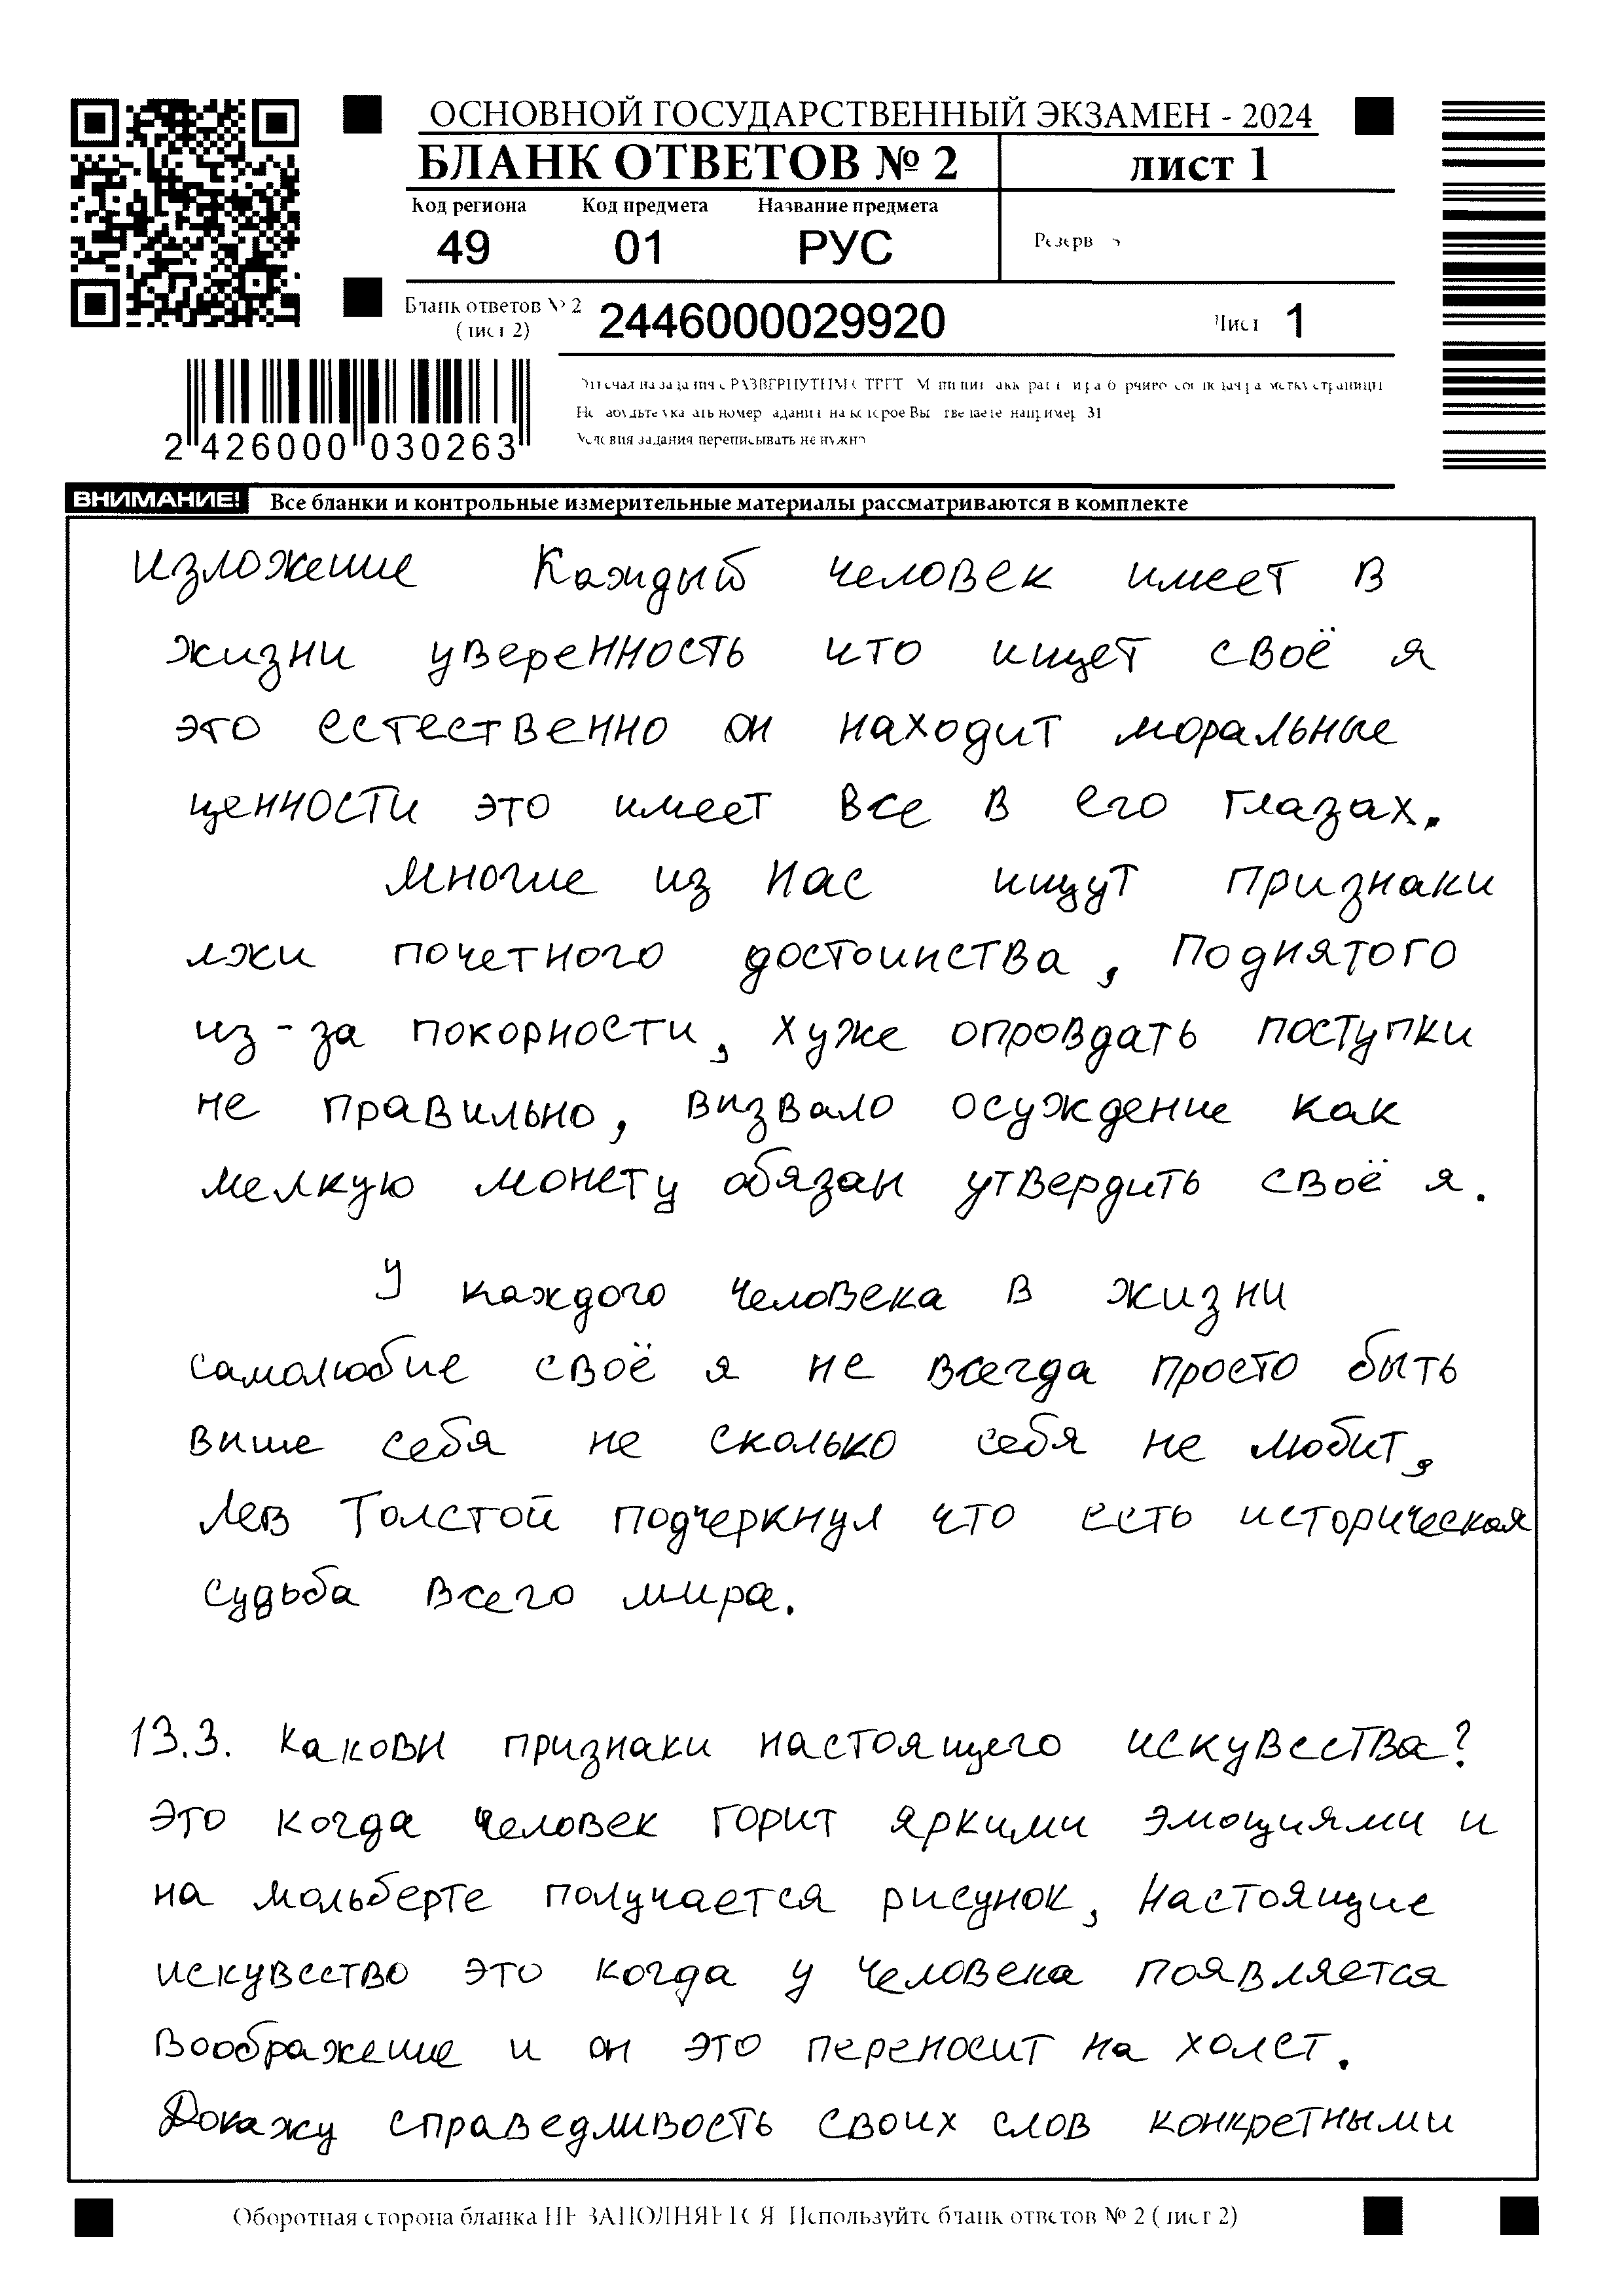 ОСНОВНОЙ ГОСУДАРСТВЕННЫЙ ЭКЗАМЕН - 2024
БЛАНК ОТВЕТОВ № 2 лист 1
Код региона Код предмета Название предмета
49 01 РУС
Резерв
Бланк ответов № 2 2446000029920 Лист 1
(лист 2)
2 426000 030263
Условия задания переписывать не нужно
ВНИМАНИЕ! Все бланки и контрольные измерительные материалы рассматриваются в комплекте
изложение Каждый человек имеет в
жизни уверенность что ищет своё я
это естественно он находит моральные
ценности это имеет все в его глазах.
Многие из нас ищут признаки
лжи почетного достоинства, поднятого
из-за покорности, хуже опровдать поступки
не правильно, визвало осуждение как
мелкую монету обязан утвердить своё я.
У каждого человека в жизни
самолюбие своё я не всегда просто быть
више себя не сколько себя не любит,
Лев Толстой подчеркнул что есть историческая
судьба всего мира.
13.3. Какови признаки настоящего искувества?
Это когда человек горит яркими эмоциями и
на мольберте получается рисунок, Настоящие
искувество это когда у человека появляется
воображение и он это переносит на холст.
Докажу справедливость своих слов конкретными
Оборотная сторона бланка НЕ ЗАПОЛНЯЕТСЯ Используйте бланк ответов № 2 (лист 2)